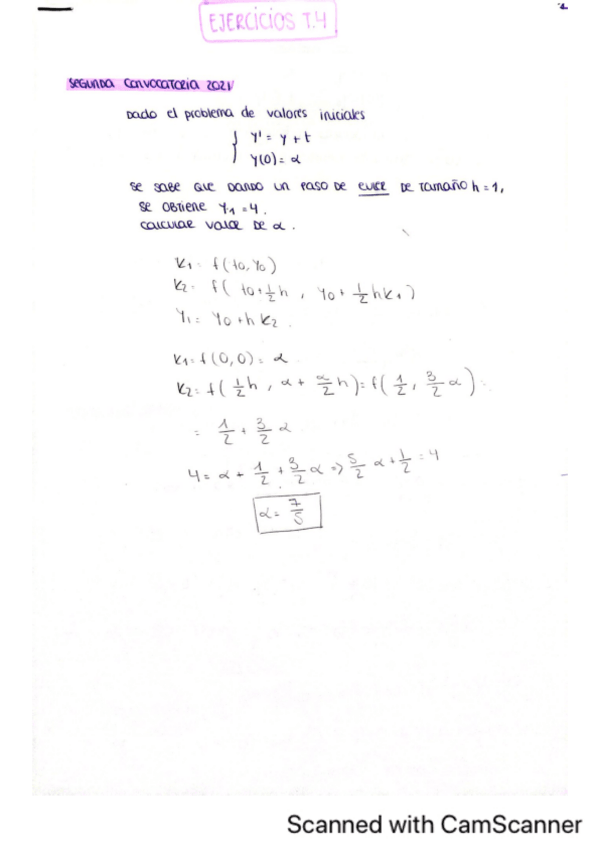 EJERCICIOS T.4
SEGUNDA CONVOCATORIA 2021
DADO el problema de valores iniciales
{ y' = y + t
y(0) = α
SE SABE QUE DANDO UN PASO DE EULER DE TAMAÑO h = 1,
SE OBTIENE Y₁ = 4.
CALCULAR VALOR DE α.
K₁ = f(t₀, Y₀)
K₂ = f( t₀ + 1/2 h , Y₀ + 1/2 h K₁ )
Y₁ = Y₀ + h K₂.
K₁ = f(0,0) = α
K₂ = f( 1/2 h , α + α/2 h ) = f( 1/2 , 3/2 α )
= 1/2 + 3/2 α
4 = α + 1/2 + 3/2 α => 5/2 α + 1/2 = 4
α = 7/5
Scanned with CamScanner